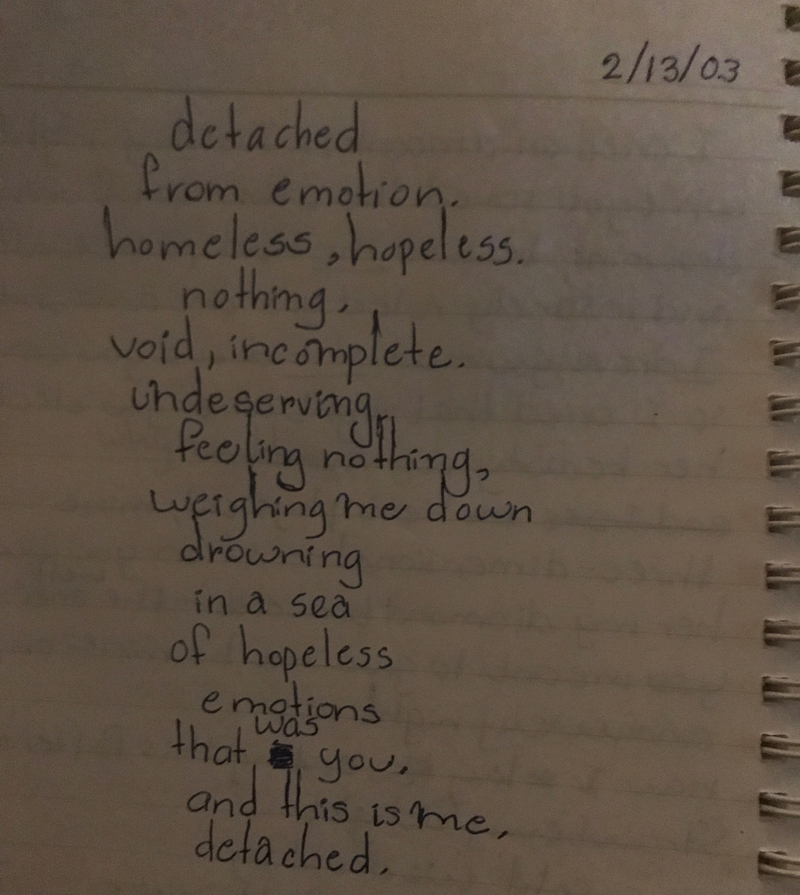 2/13/03
detached
from emotion.
homeless, hopeless.
nothing.
void, incomplete.
undeserving.
feeling nothing,
weighing me down
drowning
in a sea
of hopeless
emotions
was
that you.
and this is me,
detached.